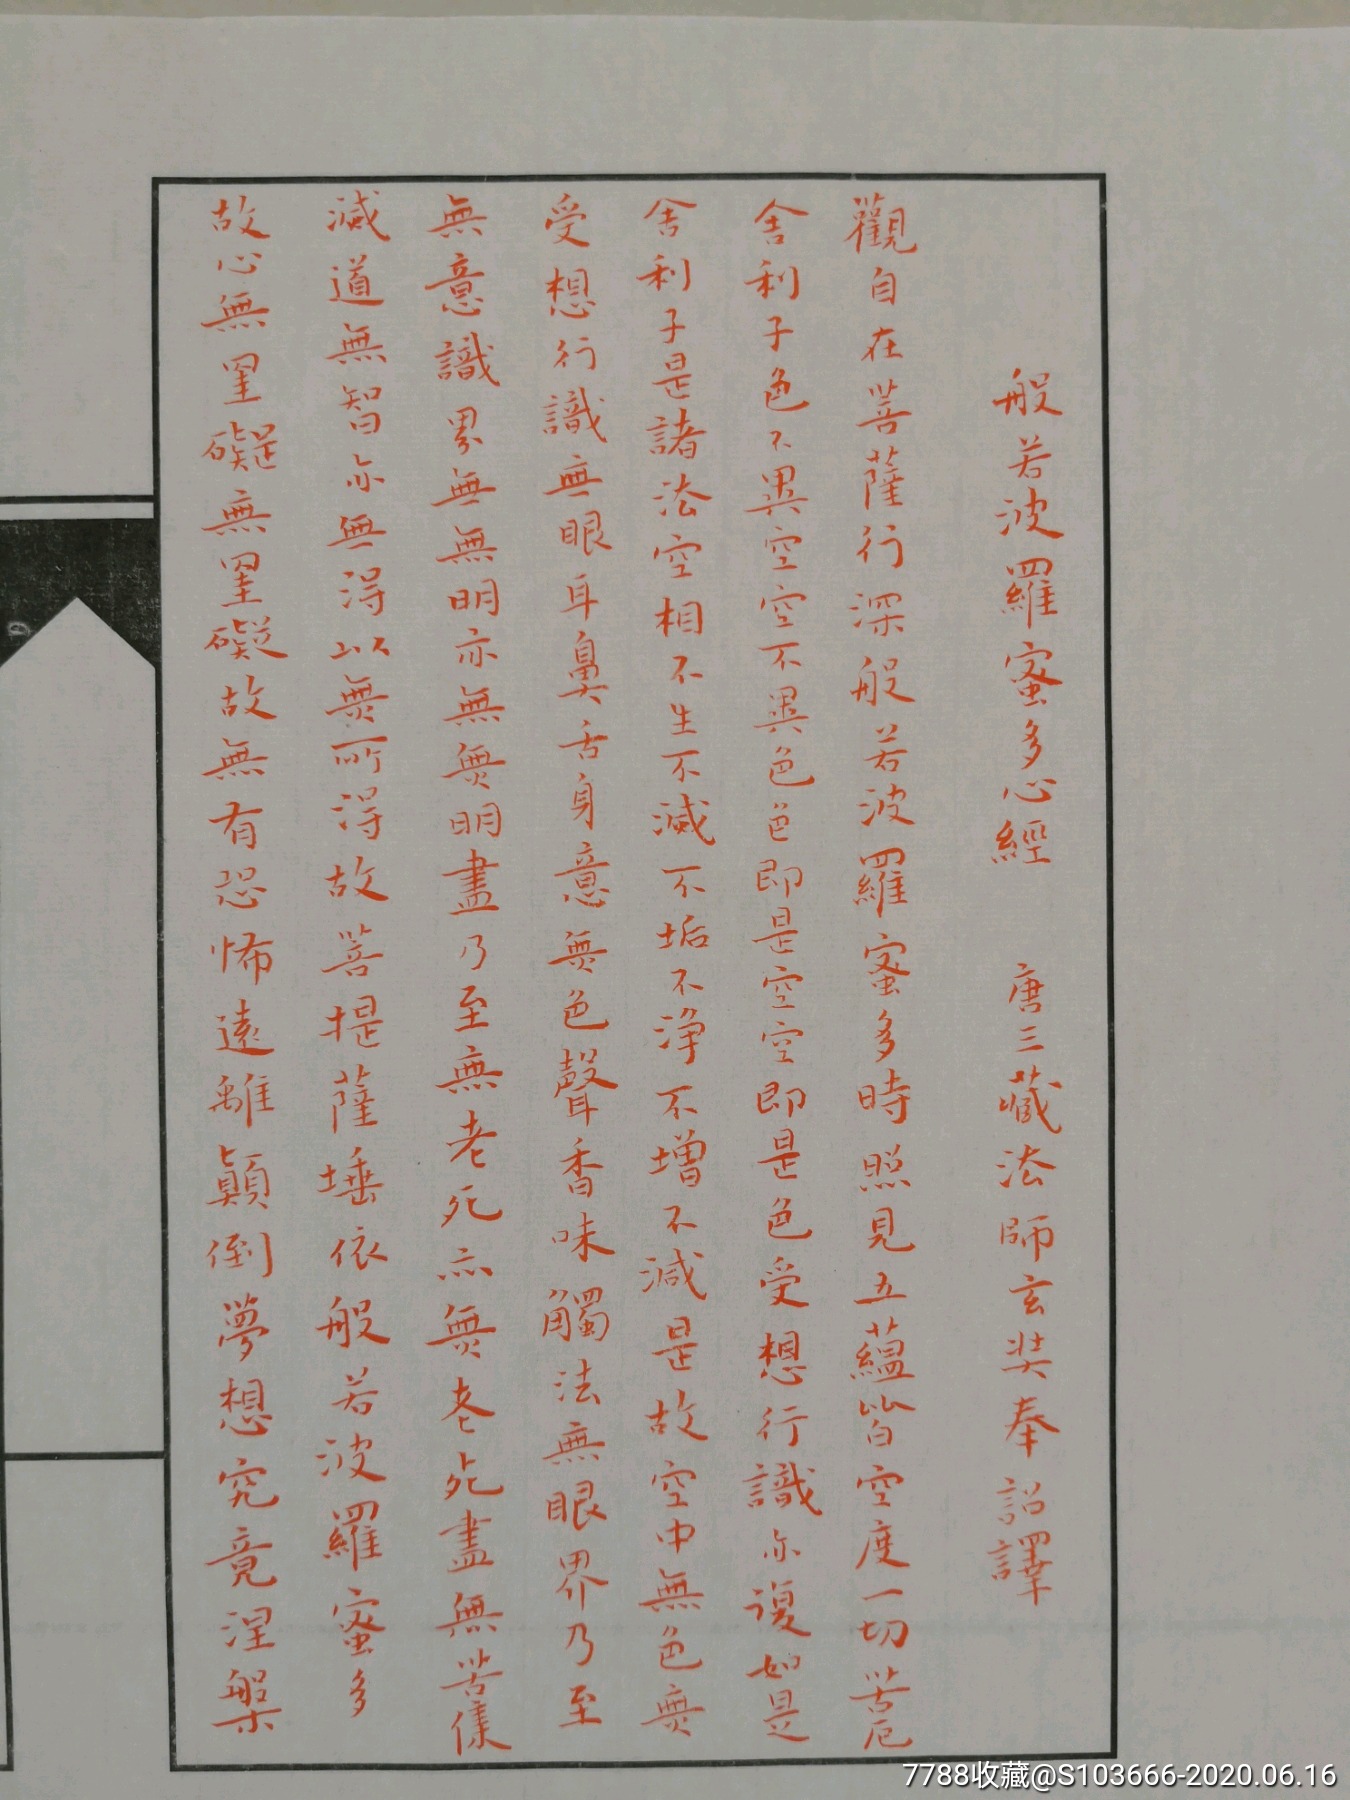 般若波羅蜜多心經 唐三藏法師玄奘奉詔譯
觀自在菩薩行深般若波羅蜜多時照見五蘊皆空度一切苦厄
舍利子色不異空空不異色色即是空空即是色受想行識亦復如是
舍利子是諸法空相不生不滅不垢不淨不增不減是故空中無色無
受想行識無眼耳鼻舌身意無色聲香味觸法無眼界乃至
無意識界無無明亦無無明盡乃至無老死亦無老死盡無苦集
滅道無智亦無得以無所得故菩提薩埵依般若波羅蜜多
故心無罣礙無罣礙故無有恐怖遠離顛倒夢想究竟涅槃
7788收藏@S103666-2020.06.16